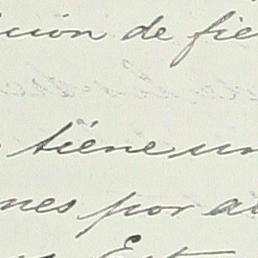 ición de fie
tiene un
nes por a